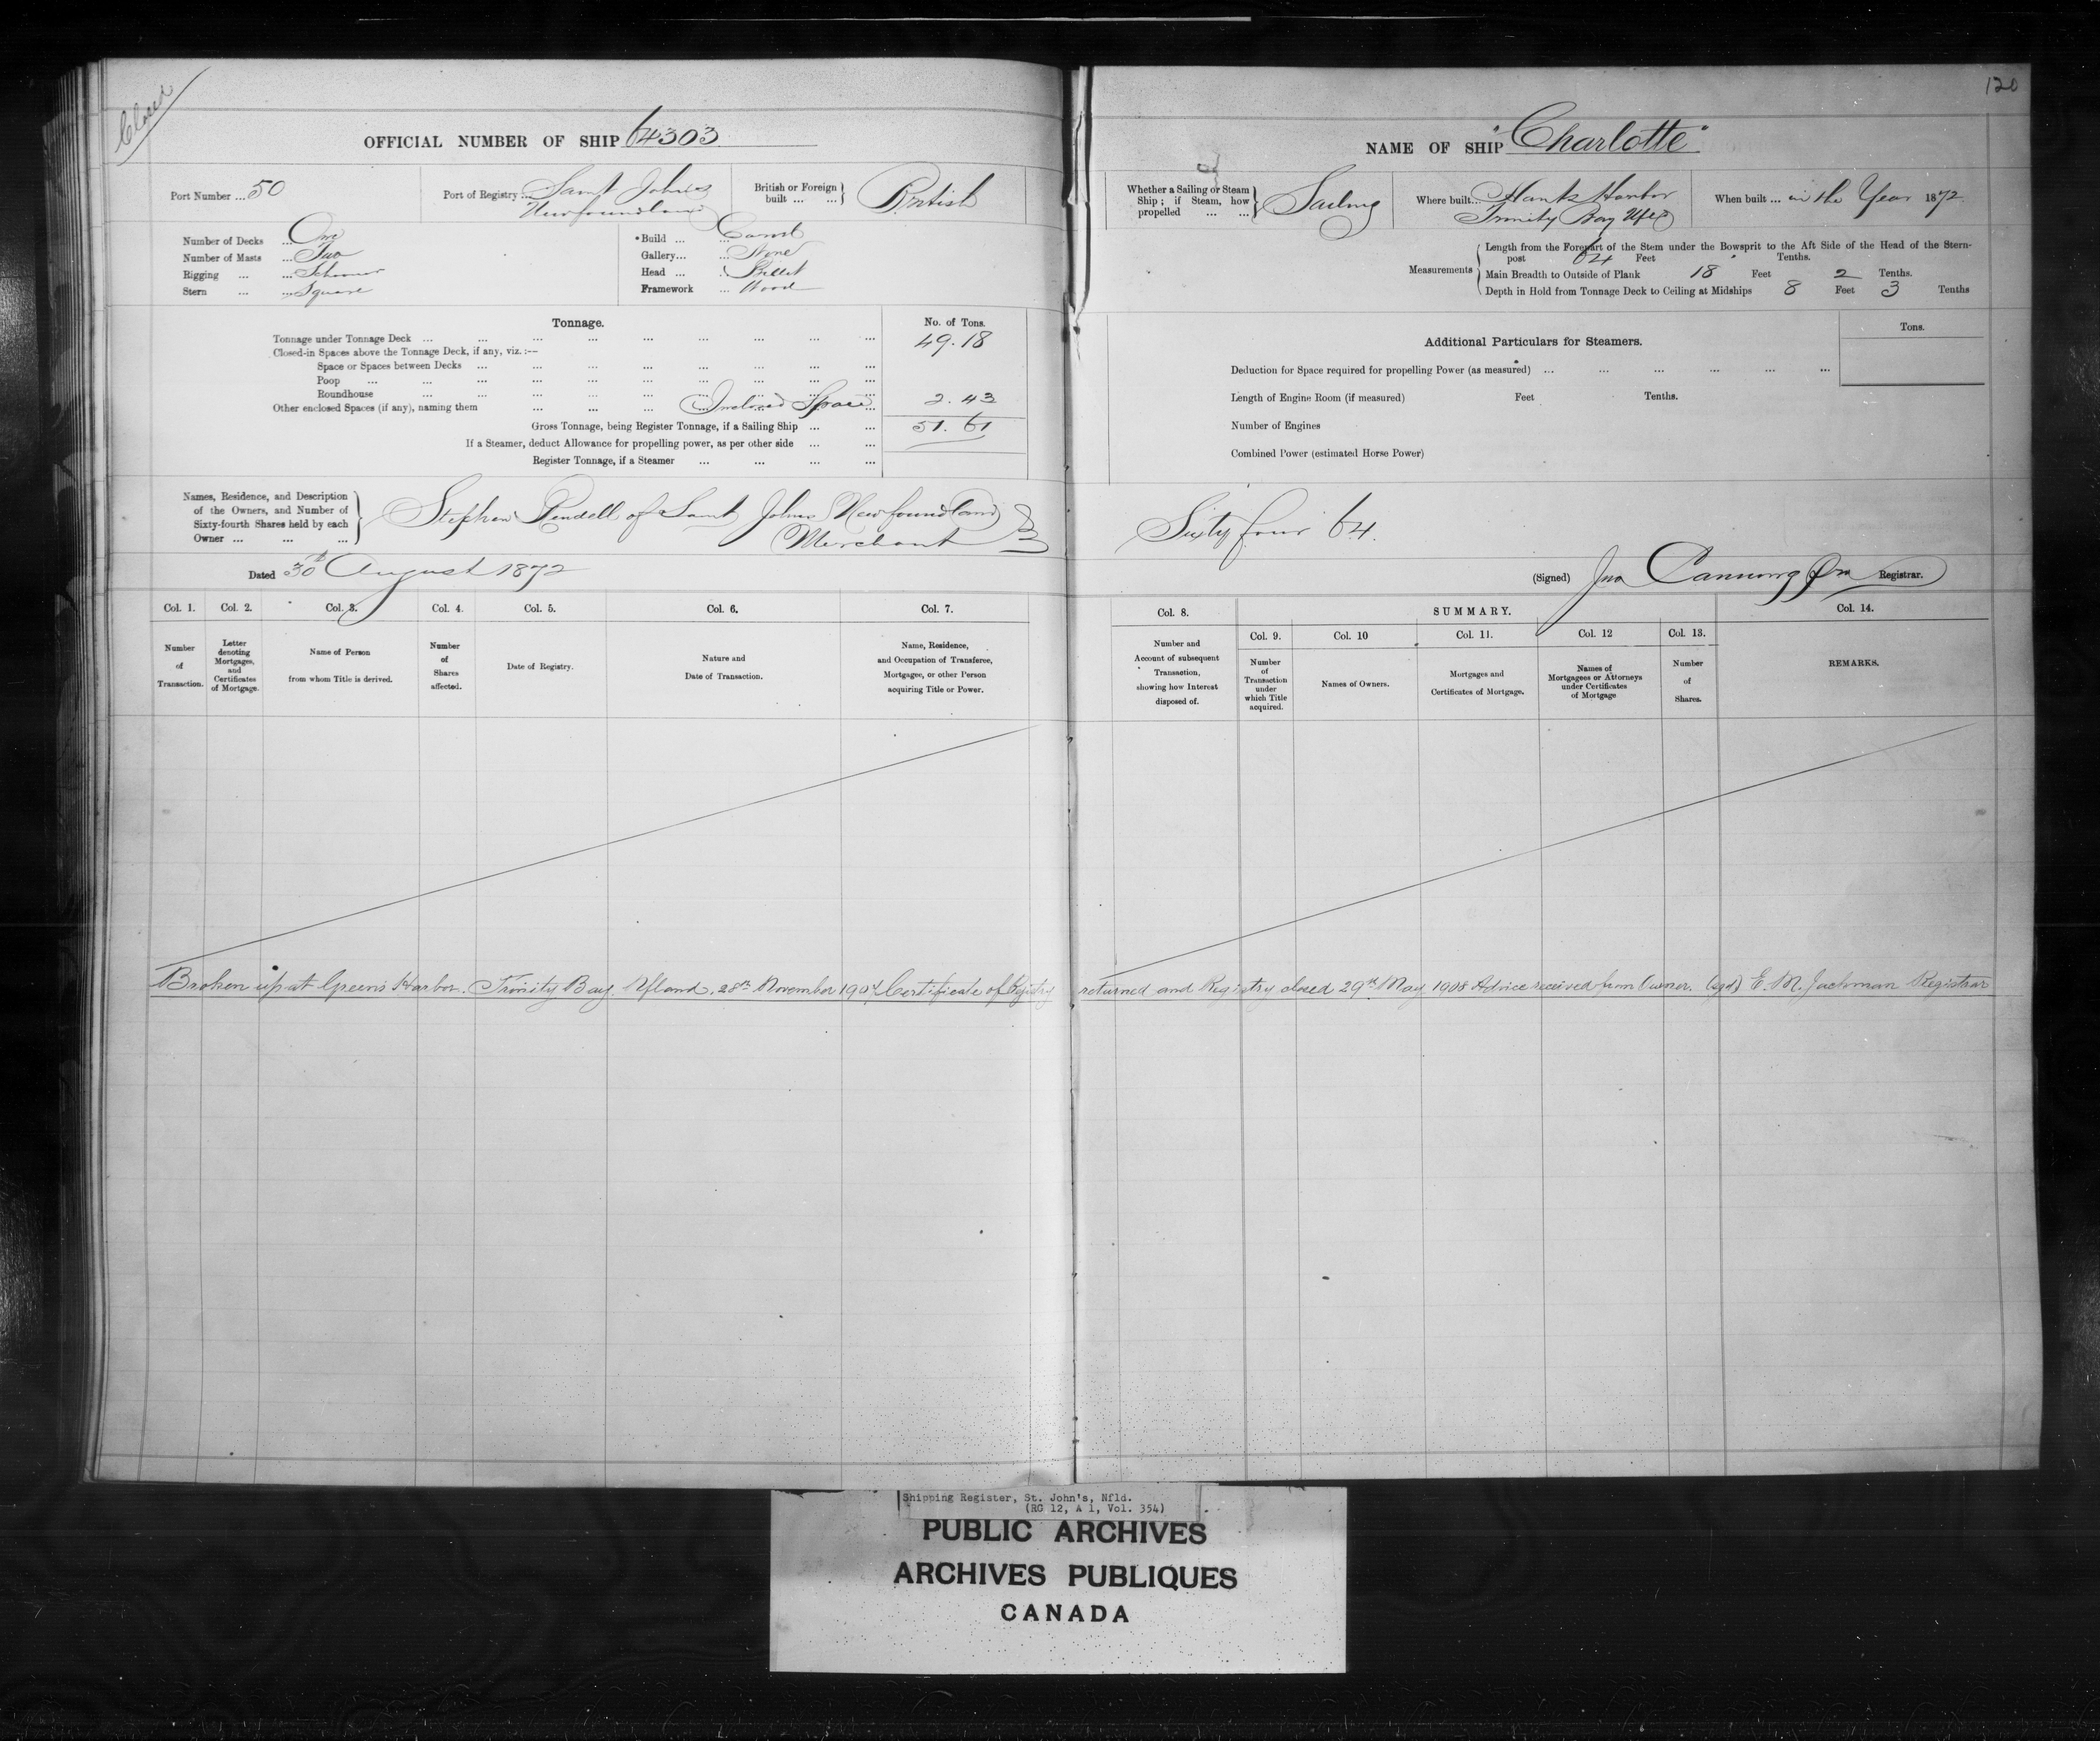 Closed
OFFICIAL NUMBER OF SHIP 64303
Port Number ... 50
Port of Registry ... Saint Johns
Newfoundland
British or Foreign built ... ... British
Number of Decks ... One
Number of Masts ... Two
Rigging ... ... Schooner
Stern ... ... Square
Build ... ...
Gallery... ... None
Head ... Billet
Framework ... Wood
Tonnage.
No. of Tons.
Tonnage under Tonnage Deck ... ... ... ... ... ... ... ... 49.18
Closed-in Spaces above the Tonnage Deck, if any, viz. :—
Space or Spaces between Decks ... ... ... ... ... ... ... ...
Poop ... ... ... ... ... ... ... ... ...
Roundhouse ... ... ... ... ... ... ... ...
Other enclosed Spaces (if any), naming them ... ... ... Inclosed Space ... 2.43
Gross Tonnage, being Register Tonnage, if a Sailing Ship ... ... 51.61
If a Steamer, deduct Allowance for propelling power, as per other side ... ...
Register Tonnage, if a Steamer ... ... ... ...
Names, Residence, and Description
of the Owners, and Number of
Sixty-fourth Shares held by each
Owner ... ... ...
Stephen Rendell of Saint Johns Newfoundland
Merchant
Dated 30th August 1872
Col. 1. Col. 2. Col. 3. Col. 4. Col. 5. Col. 6. Col. 7.
Number of Transaction.
Letter denoting Mortgages, and Certificates of Mortgage.
Name of Person from whom Title is derived.
Number of Shares affected.
Date of Registry.
Nature and Date of Transaction.
Name, Residence, and Occupation of Transferee, Mortgagee, or other Person acquiring Title or Power.
120
NAME OF SHIP "Charlotte"
Whether a Sailing or Steam Ship ; if Steam, how propelled ... ... Sailing
Where built... Hants Harbor
Trinity Bay Nfld
When built ... in the Year 1872
Measurements
Length from the Forepart of the Stem under the Bowsprit to the Aft Side of the Head of the Stern-
post 64 Feet Tenths.
Main Breadth to Outside of Plank 18 Feet 2 Tenths.
Depth in Hold from Tonnage Deck to Ceiling at Midships 8 Feet 3 Tenths
Additional Particulars for Steamers.
Tons.
Deduction for Space required for propelling Power (as measured) ... ... ... ... ... ...
Length of Engine Room (if measured) Feet Tenths.
Number of Engines
Combined Power (estimated Horse Power)
Sixty four 64.
(Signed) Jno Canning Registrar.
Col. 8. SUMMARY. Col. 14.
Col. 9. Col. 10 Col. 11. Col. 12 Col. 13.
Number and Account of subsequent Transaction, showing how Interest disposed of.
Number of Transaction under which Title acquired.
Names of Owners.
Mortgages and Certificates of Mortgage.
Names of Mortgagees or Attorneys under Certificates of Mortgage
Number of Shares.
REMARKS.
Broken up at Green's Harbor. Trinity Bay. Nfland. 28th November 1907 Certificate of Registry returned and Registry closed 29th May 1908 Advice received from Owner. (sgd) E. M. Jackman Registrar
Shipping Register, St. John's, Nfld.
(RG 12, A 1, Vol. 354)
PUBLIC ARCHIVES
ARCHIVES PUBLIQUES
CANADA